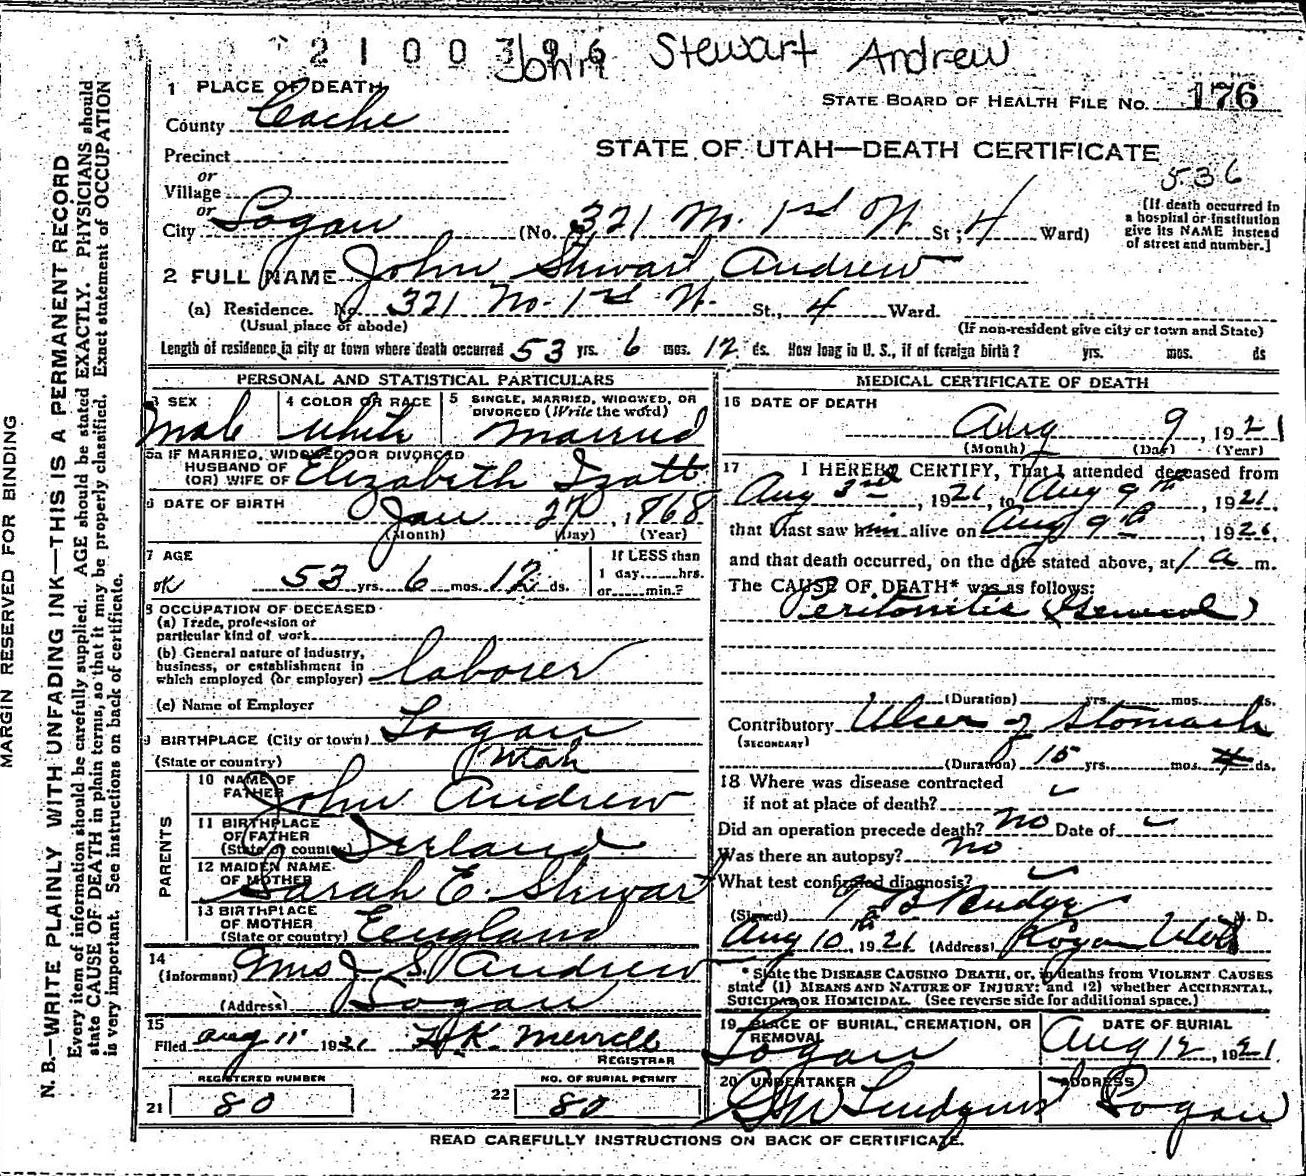 2 1 0 0 3 9 6
John Stewart Andrew
1 PLACE OF DEATH
STATE BOARD OF HEALTH FILE No. 176
County Cache
STATE OF UTAH—DEATH CERTIFICATE
Precinct
or
Village
536
or
City Logan (No. 321 N. 1st W St; 4 Ward)
[If death occurred in
a hospital or institution
give its NAME instead
of street and number.]
2 FULL NAME John Stewart Andrew
(a) Residence. No. 321 No. 1st W. St., 4 Ward.
(Usual place of abode)
(If non-resident give city or town and State)
Length of residence in city or town where death occurred 53 yrs. 6 mos. 12 ds. How long in U. S., if of foreign birth? yrs. mos. ds
PERSONAL AND STATISTICAL PARTICULARS
3 SEX
Male
4 COLOR OR RACE
White
5 SINGLE, MARRIED, WIDOWED, OR
DIVORCED (Write the word)
Married
5a IF MARRIED, WIDOWED, OR DIVORCED
HUSBAND OF
(OR) WIFE OF Elizabeth Izatt
6 DATE OF BIRTH
Jan 27, 1868
(Month) (Day) (Year)
7 AGE
ok 53 yrs. 6 mos. 12 ds.
If LESS than
1 day......hrs.
or......min.?
8 OCCUPATION OF DECEASED
(a) Trade, profession or
particular kind of work
(b) General nature of industry,
business, or establishment in
which employed (or employer) laborer
(c) Name of Employer
9 BIRTHPLACE (City or town) Logan
(State or country) Utah
PARENTS
10 NAME OF
FATHER John Andrew
11 BIRTHPLACE
OF FATHER
(State or country) Ireland
12 MAIDEN NAME
OF MOTHER Sarah E. Stewart
13 BIRTHPLACE
OF MOTHER
(State or country) England
14
(Informant) Mrs J. S. Andrew
(Address) Logan
15
Filed Aug 11 1921 Merrell
REGISTRAR
REGISTERED NUMBER
21 80
NO. OF BURIAL PERMIT
22 80
MEDICAL CERTIFICATE OF DEATH
16 DATE OF DEATH
Aug 9, 1921
(Month) (Day) (Year)
17 I HEREBY CERTIFY, That I attended deceased from
Aug 3rd, 1921, to Aug 9th, 1921,
that I last saw him alive on Aug 9th, 1921,
and that death occurred, on the date stated above, at 1 a m.
The CAUSE OF DEATH* was as follows:
Peritonitis (General)
(Duration) yrs. mos. ds.
Contributory Ulcer of Stomach
(SECONDARY)
(Duration) 15 yrs. mos. ds.
18 Where was disease contracted
if not at place of death?
Did an operation precede death? no Date of
Was there an autopsy? no
What test confirmed diagnosis?
(Signed) Budge M. D.
Aug 10th, 1921 (Address) Logan Utah
* State the DISEASE CAUSING DEATH, or, in deaths from VIOLENT CAUSES
state (1) MEANS AND NATURE OF INJURY; and (2) whether ACCIDENTAL,
SUICIDAL OR HOMICIDAL. (See reverse side for additional space.)
19 PLACE OF BURIAL, CREMATION, OR
REMOVAL
Logan
DATE OF BURIAL
Aug 12, 1921
20 UNDERTAKER
Lindquist
ADDRESS
Logan
READ CAREFULLY INSTRUCTIONS ON BACK OF CERTIFICATE.
MARGIN RESERVED FOR BINDING
N. B.—WRITE PLAINLY WITH UNFADING INK—THIS IS A PERMANENT RECORD
Every item of information should be carefully supplied. AGE should be stated EXACTLY. PHYSICIANS should
state CAUSE OF DEATH in plain terms, so that it may be properly classified. Exact statement of OCCUPATION
is very important. See instructions on back of certificate.